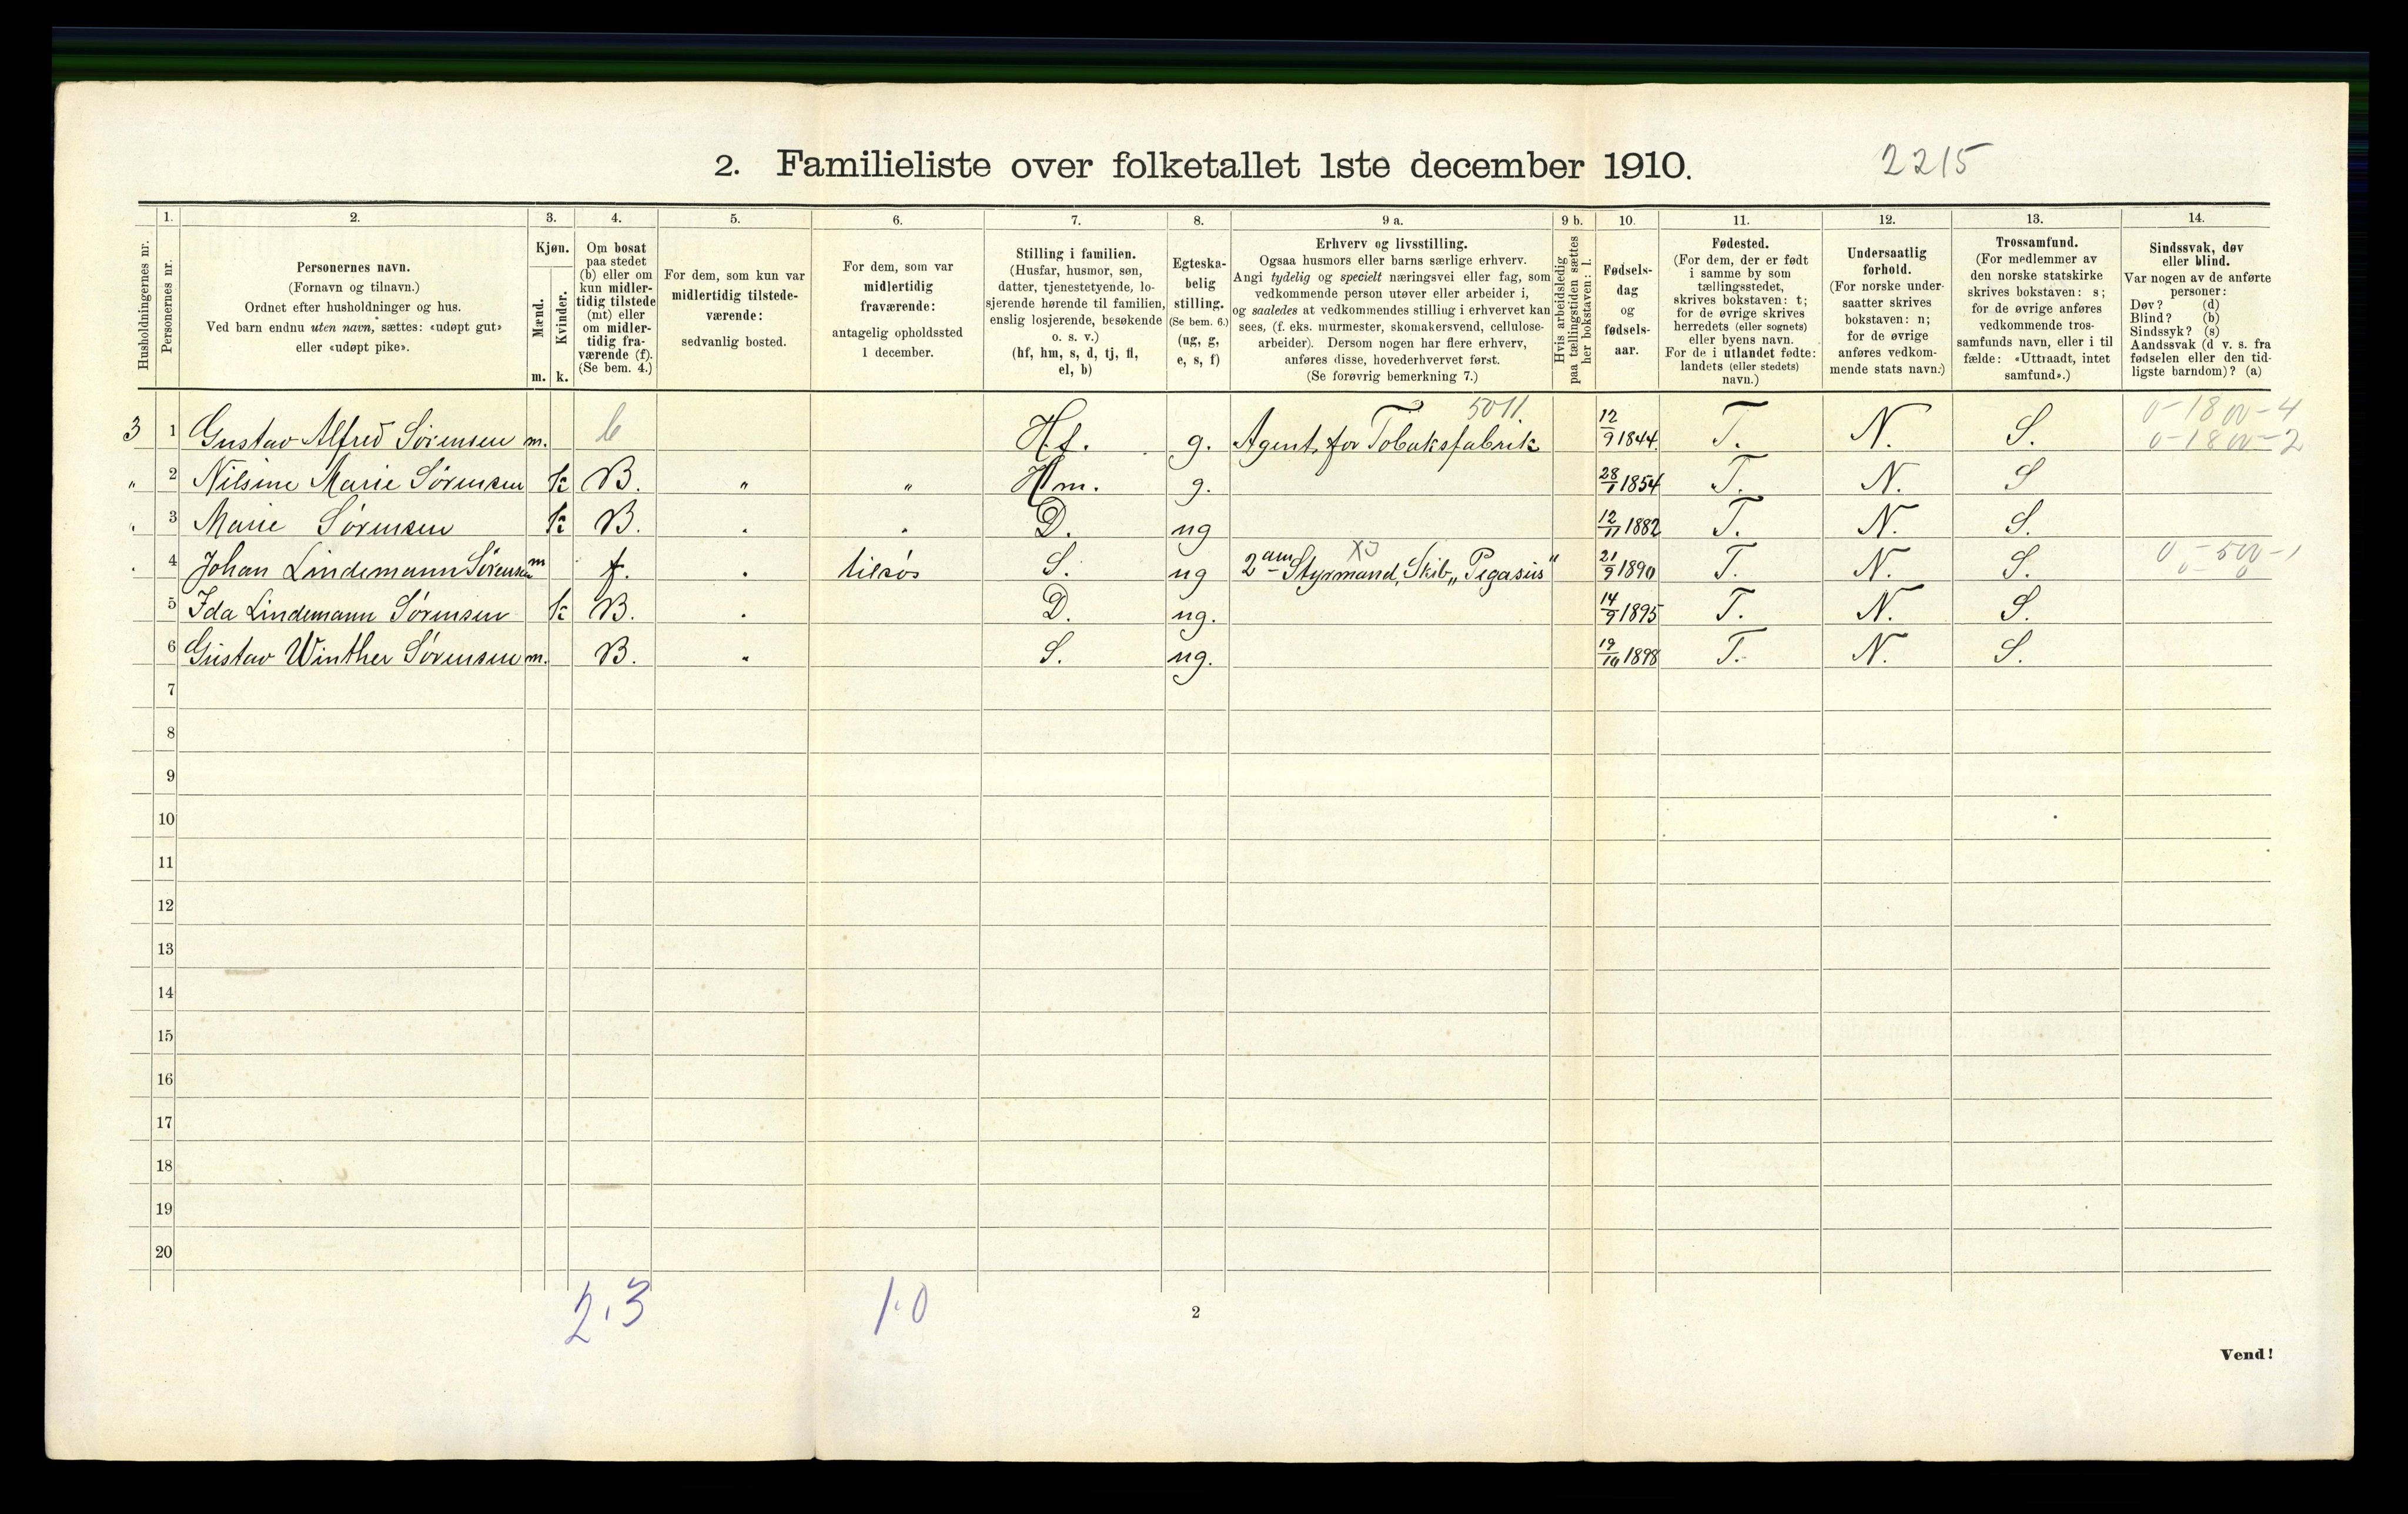 2. Familieliste over folketallet 1ste december 1910.
2215
1. 2. 3. 4. 5. 6. 7. 8. 9 a. 9 b. 10. 11. 12. 13. 14.
Husholdningernes nr.
Personernes nr.
Personernes navn.
(Fornavn og tilnavn.)
Ordnet efter husholdninger og hus.
Ved barn endnu uten navn, sættes: «udøpt gut»
eller «udøpt pike».
Kjøn.
Mænd.
Kvinder.
m. k.
Om bosat
paa stedet
(b) eller om
kun midler-
tidig tilstede
(mt) eller
om midler-
tidig fra-
værende (f).
(Se bem. 4.)
For dem, som kun var
midlertidig tilstede-
værende:
sedvanlig bosted.
For dem, som var
midlertidig
fraværende:
antagelig opholdssted
1 december.
Stilling i familien.
(Husfar, husmor, søn,
datter, tjenestetyende, lo-
sjerende hørende til familien,
enslig losjerende, besøkende
o. s. v.)
(hf, hm, s, d, tj, fl,
el, b)
Egteska-
belig
stilling.
(Se bem. 6.)
(ug, g,
e, s, f)
Erhverv og livsstilling.
Ogsaa husmors eller barns særlige erhverv.
Angi tydelig og specielt næringsvei eller fag, som
vedkommende person utøver eller arbeider i,
og saaledes at vedkommendes stilling i erhvervet kan
sees, (f. eks. murmester, skomakersvend, cellulose-
arbeider). Dersom nogen har flere erhverv,
anføres disse, hovederhvervet først.
(Se forøvrig bemerkning 7.)
Hvis arbeidsledig
paa tællingstiden sættes
her bokstaven: l.
Fødsels-
dag
og
fødsels-
aar.
Fødested.
(For dem, der er født
i samme by som
tællingsstedet,
skrives bokstaven: t;
for de øvrige skrives
herredets (eller sognets)
eller byens navn.
For de i utlandet fødte:
landets (eller stedets)
navn.)
Undersaatlig
forhold.
(For norske under-
saatter skrives
bokstaven: n;
for de øvrige
anføres vedkom-
mende stats navn.)
Trossamfund.
(For medlemmer av
den norske statskirke
skrives bokstaven: s;
for de øvrige anføres
vedkommende tros-
samfunds navn, eller i til
fælde: «Uttraadt, intet
samfund».)
Sindssvak, døv
eller blind.
Var nogen av de anførte
personer:
Døv? (d)
Blind? (b)
Sindssyk? (s)
Aandssvak (d v. s. fra
fødselen eller den tid-
ligste barndom)? (a)
5011 0-1800-4
3 1 Gustav Alfred Sørensen m. b Hf. g. Agent for Tobaksfabrik 12/9 1844. T. N. S. 0-1800-2
" 2 Nilsine Marie Sørensen k B. " " Hm. g. 28/1 1854 T. N. S
" 3 Marie Sørensen k B. " " D. ug 12/11 1882 T. N. S.
" 4 Johan Lindemann Sørensen m f. " tilsøs S. ug 2den Styrmand, Skib „Pegasus" 21/9 1890 T. N. S. 0-500-1
5 Ida Lindemann Sørensen k B. " D. ug. 14/9 1895 T. N. S.
6 Gustav Winther Sørensen m. B. " S. ug. 19/10 1898 T. N. S.
7
8
9
10
11
12
13
14
15
16
17
18
19
20
2.3 1.0
2
Vend!